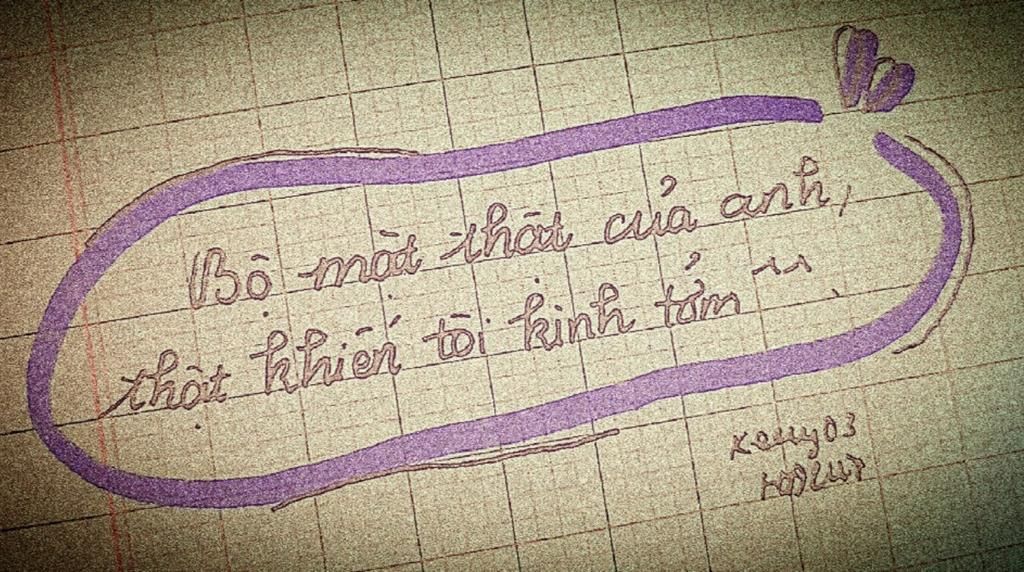 Bộ mặt thật của anh,
thật khiến tôi kinh tởm ^^